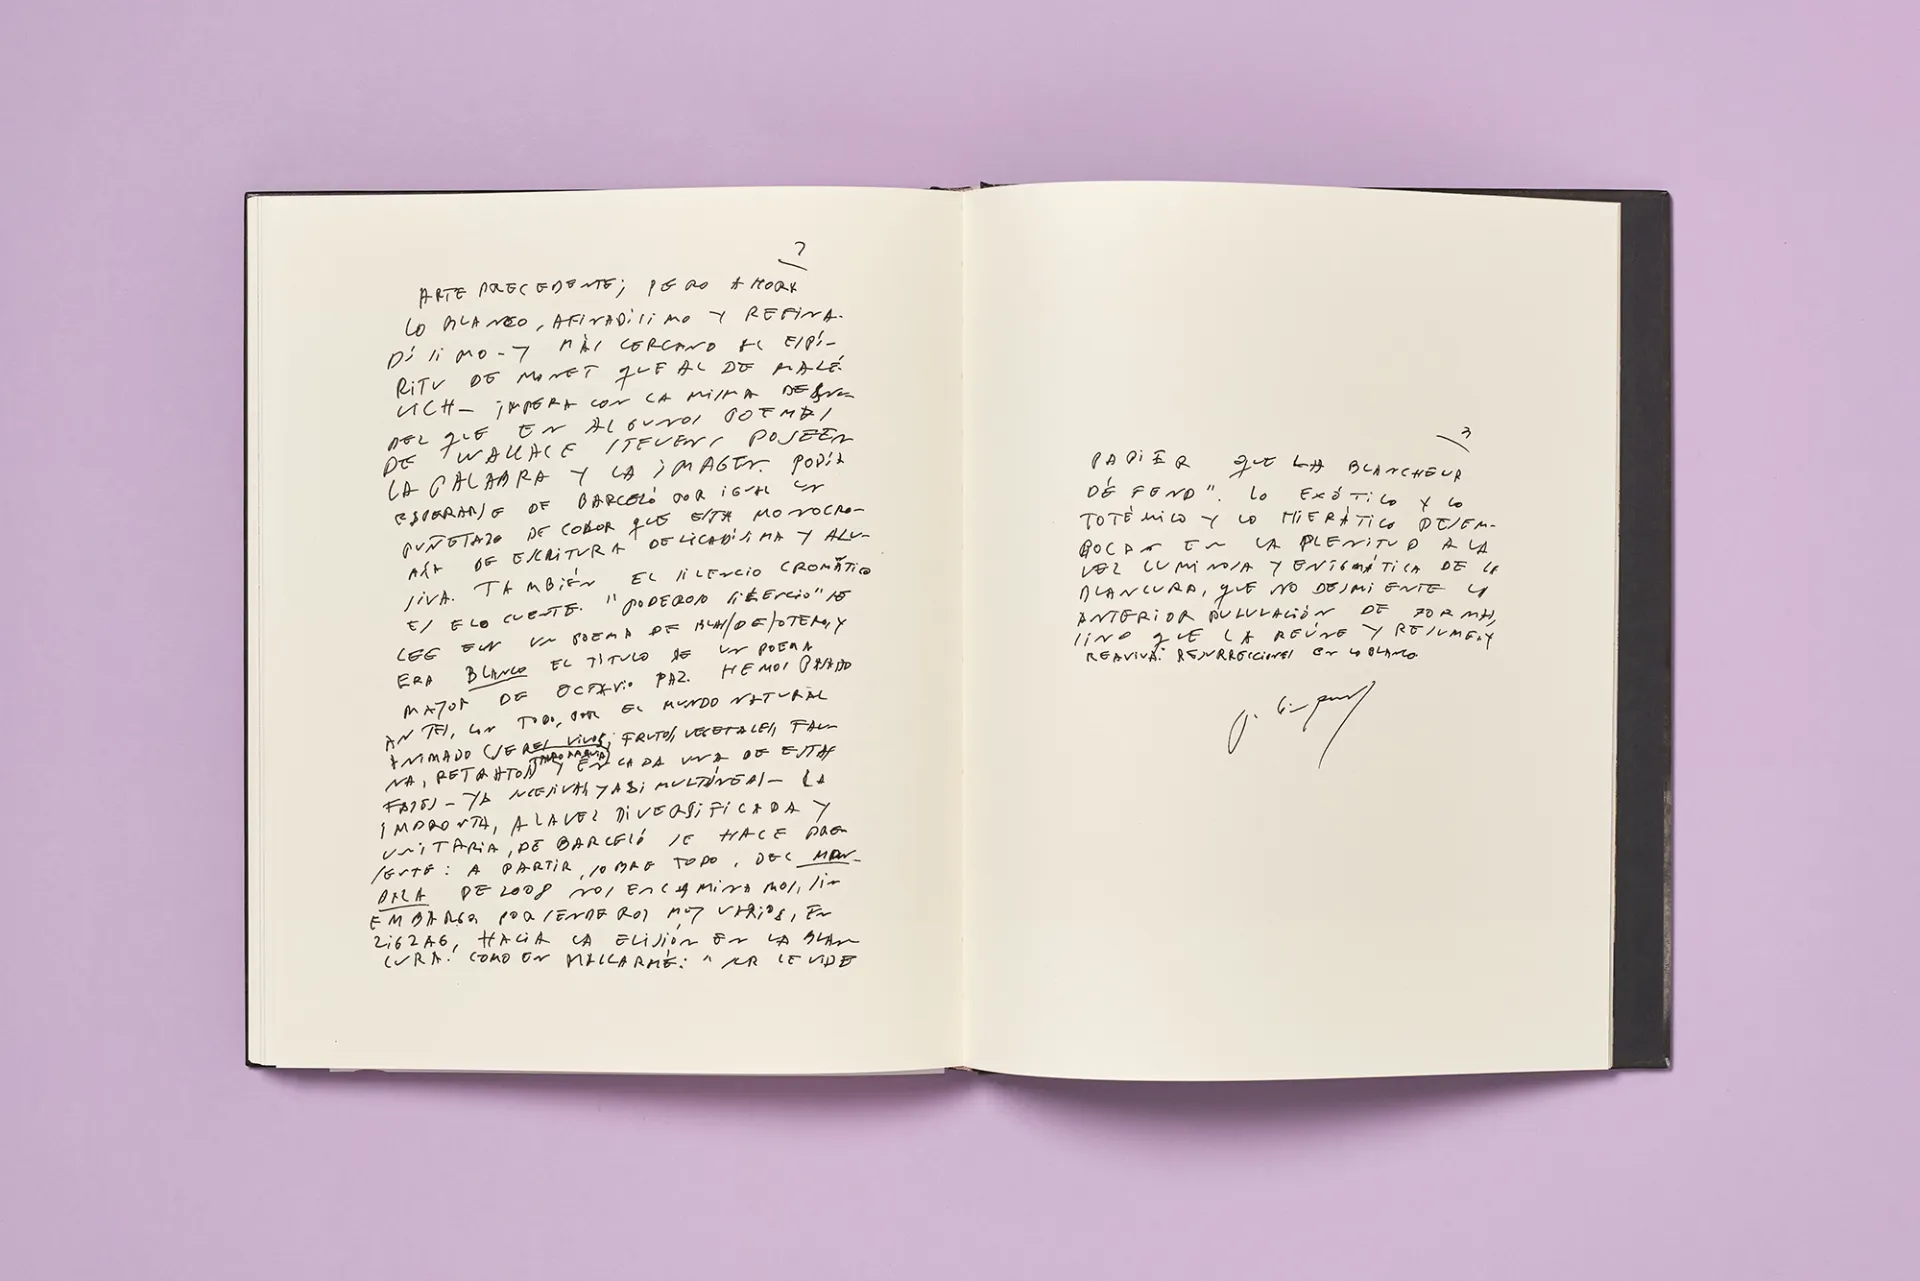 2
ARTE PRECEDENTE; PERO AHORA
LO BLANCO, AFINADÍSIMO Y REFINA-
DÍSIMO - Y MÁS CERCANO AL ESPÍ-
RITU DE MONET QUE AL DE MALÉ-
VICH - IMPERA CON LA MISMA
DEL QUE EN ALGUNOS POEMAS
DE WALLACE STEVENS POSEEN
LA PALABRA Y LA IMAGEN. PODÍA
ESPERARSE DE BARCELÓ POR IGUAL UN
PUÑETAZO DE COLOR QUE ESTA MONOCRO-
MÍA DE ESCRITURA DELICADÍSIMA Y ALU-
SIVA. TAMBIÉN EL SILENCIO CROMÁTICO
ES ELOCUENTE. "PODEROSO SILENCIO" SE
LEE EN UN POEMA DE BLAS DE OTERO, Y
ERA BLANCO EL TÍTULO DE UN POEMA
MAYOR DE OCTAVIO PAZ. HEMOS PASADO
ANTES, CON TODO, POR EL MUNDO NATURAL
ANIMADO (SERES VIVOS, FRUTOS, VEGETALES, FAU-
NA, RETRATOS) Y EN CADA UNA DE ESTAS
FASES - YA SUCESIVAS, YA SIMULTÁNEAS - LA
IMPRONTA, A LA VEZ DIVERSIFICADA Y
UNITARIA, DE BARCELÓ SE HACE PRE-
SENTE: A PARTIR, SOBRE TODO, DEL MAN-
DALA DE 2008 NOS ENCAMINAMOS, SIN
EMBARGO, POR SENDEROS MUY VARIOS, EN
ZIGZAG, HACIA LA ELISIÓN EN LA BLAN-
CURA. COMO EN MALLARMÉ: "SUR LE VIDE
3
PAPIER QUE LA BLANCHEUR
DÉFEND". LO EXÓTICO Y LO
TOTÉMICO Y LO HIERÁTICO DESEM-
BOCAN EN LA PLENITUD A LA
VEZ LUMINOSA Y ENIGMÁTICA DE LA
BLANCURA, QUE NO DESMIENTE LA
ANTERIOR PULULACIÓN DE FORMAS,
SINO QUE LA REÚNE Y RESUME, Y
REAVIVA: RESURRECCIONES EN LO BLANCO.